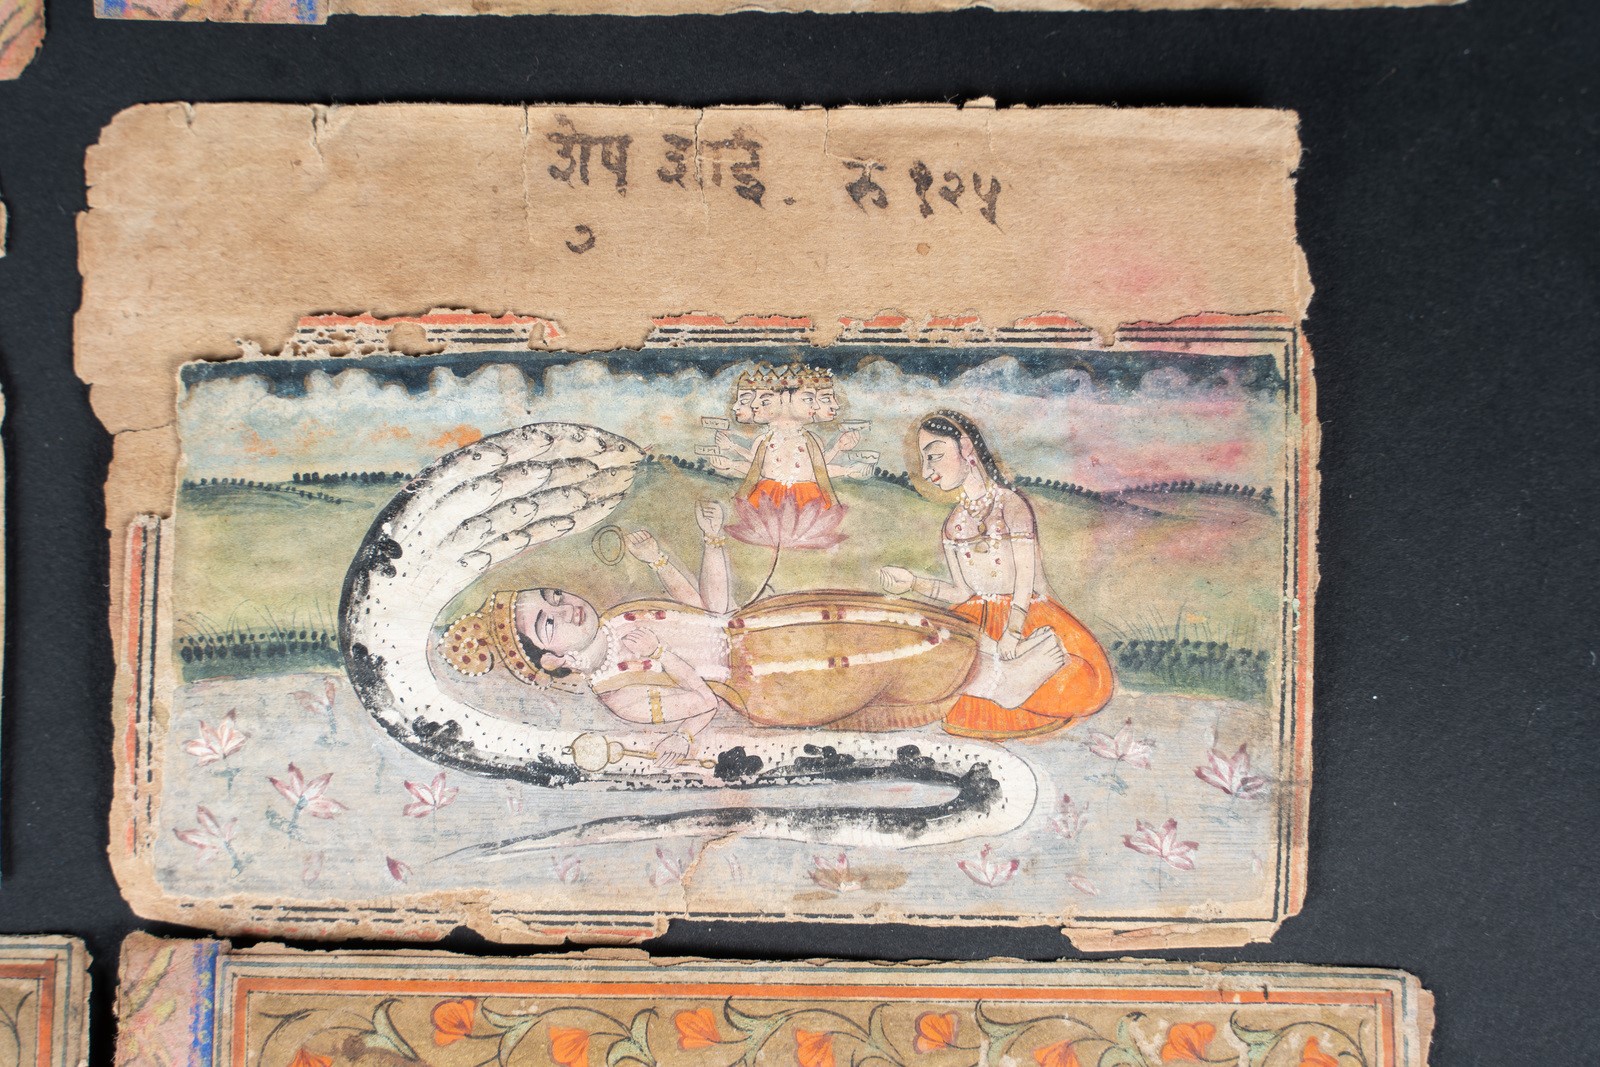 शेष शाई. रु १२५